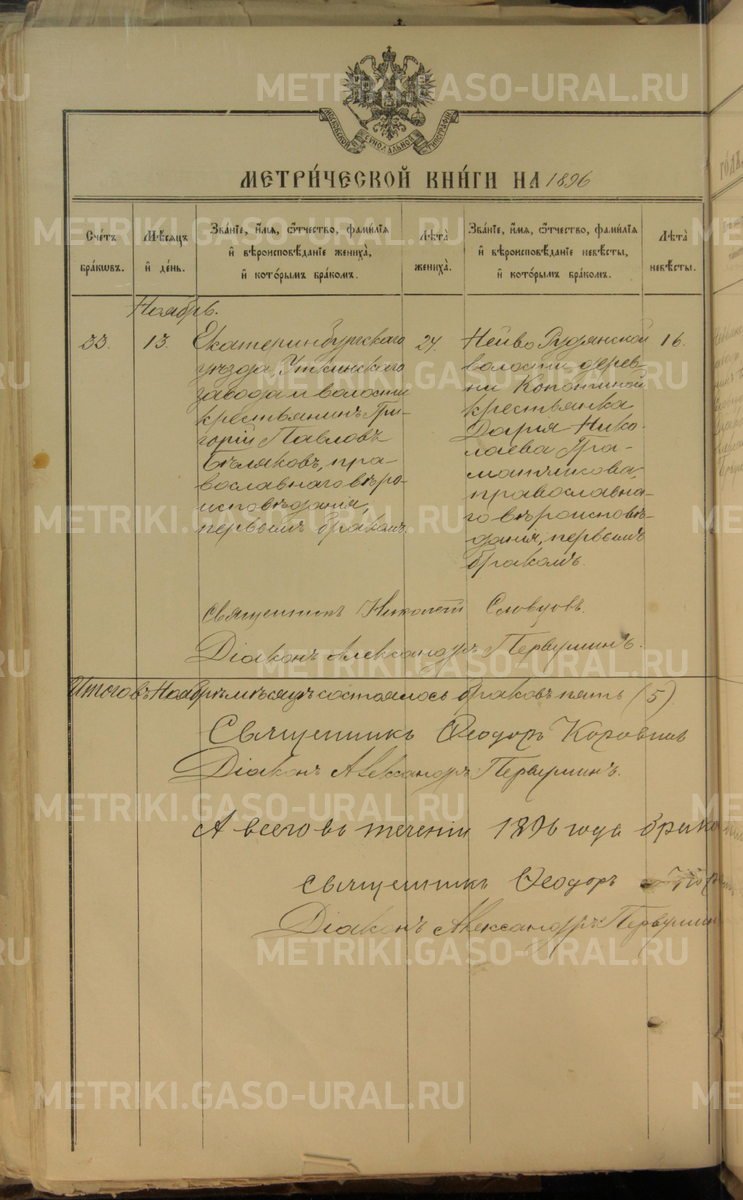 METRIKI.GASO-URAL.RU
МОСКОВСКОЙ СѴНОДАЛЬНОЙ ТИПОГРАФІИ
МЕТРИ́ЧЕСКОЙ КНИ́ГИ НА 1896
Сче́тъ бра́кѡвъ.
Мѣ́сяцъ и҆ де́нь.
Зва́нїе, и҆́мя, ѻ҆́тчество, фами́лїя и҆ вѣроисповѣ́данїе жениха̀, и҆ кото́рымъ бра́комъ.
Лѣ́та жениха̀.
Зва́нїе, и҆́мя, ѻ҆́тчество, фами́лїя и҆ вѣроисповѣ́данїе невѣ́сты, и҆ кото́рымъ бра́комъ.
Лѣ́та невѣ́сты.
Ноябрь.
33.
13.
Екатеринбургскаго
уѣзда, Уткинскаго
завода и волости
крестьянинъ Гри-
горій Павловъ
Бѣляковъ, пра-
вославнаго вѣро-
исповѣданія,
первымъ бракомъ
24.
Нейво Рудянской
волости, дерев-
ни Копотиной
крестьянка
Дарія Нико-
лаева Гра-
матчикова,
православна-
го вѣроисповѣ-
данія, первымъ
бракомъ.
16.
Священникъ Николай Словцовъ.
Діаконъ Александръ Первушинъ.
Итого въ Ноябрѣ мѣсяцѣ состоялось браковъ пять (5)
Священникъ Ѳеодоръ Коровинъ
Діаконъ Александръ Первушинъ.
А всего въ теченіи 1896 года брако
священникъ Ѳеодоръ
Діаконъ Александръ Первушин